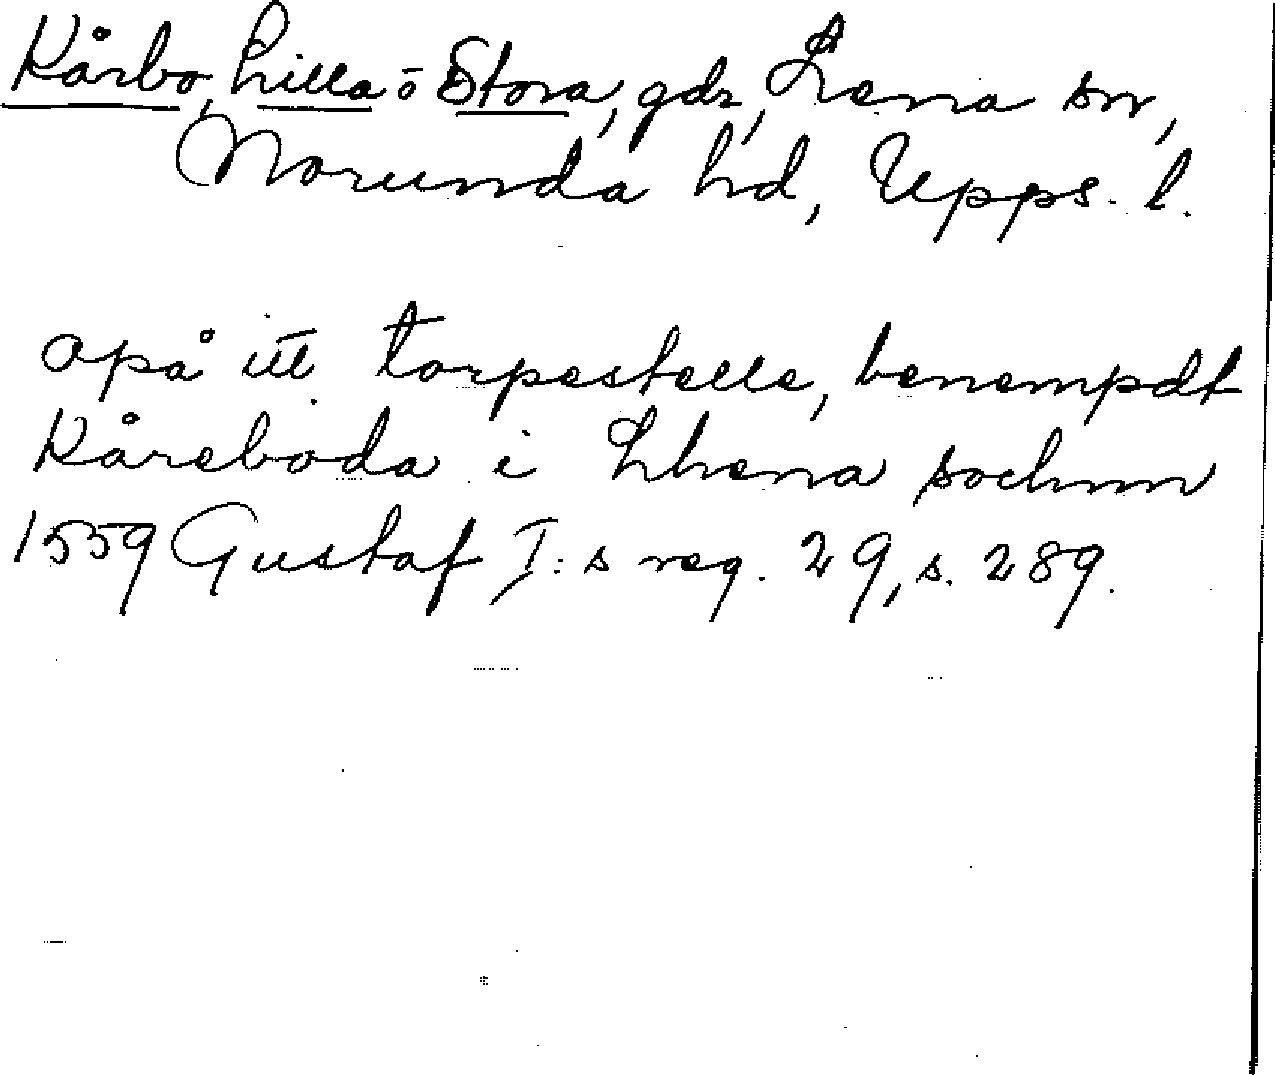 Kårbo, Lilla o Stora, gdr, Lena sn,
Norunda hd, Upps. l.
opå itt torpestelle, benempdt
Kåreboda i Lhena sochnn
1559 Gustaf I:s reg. 29, s. 289.